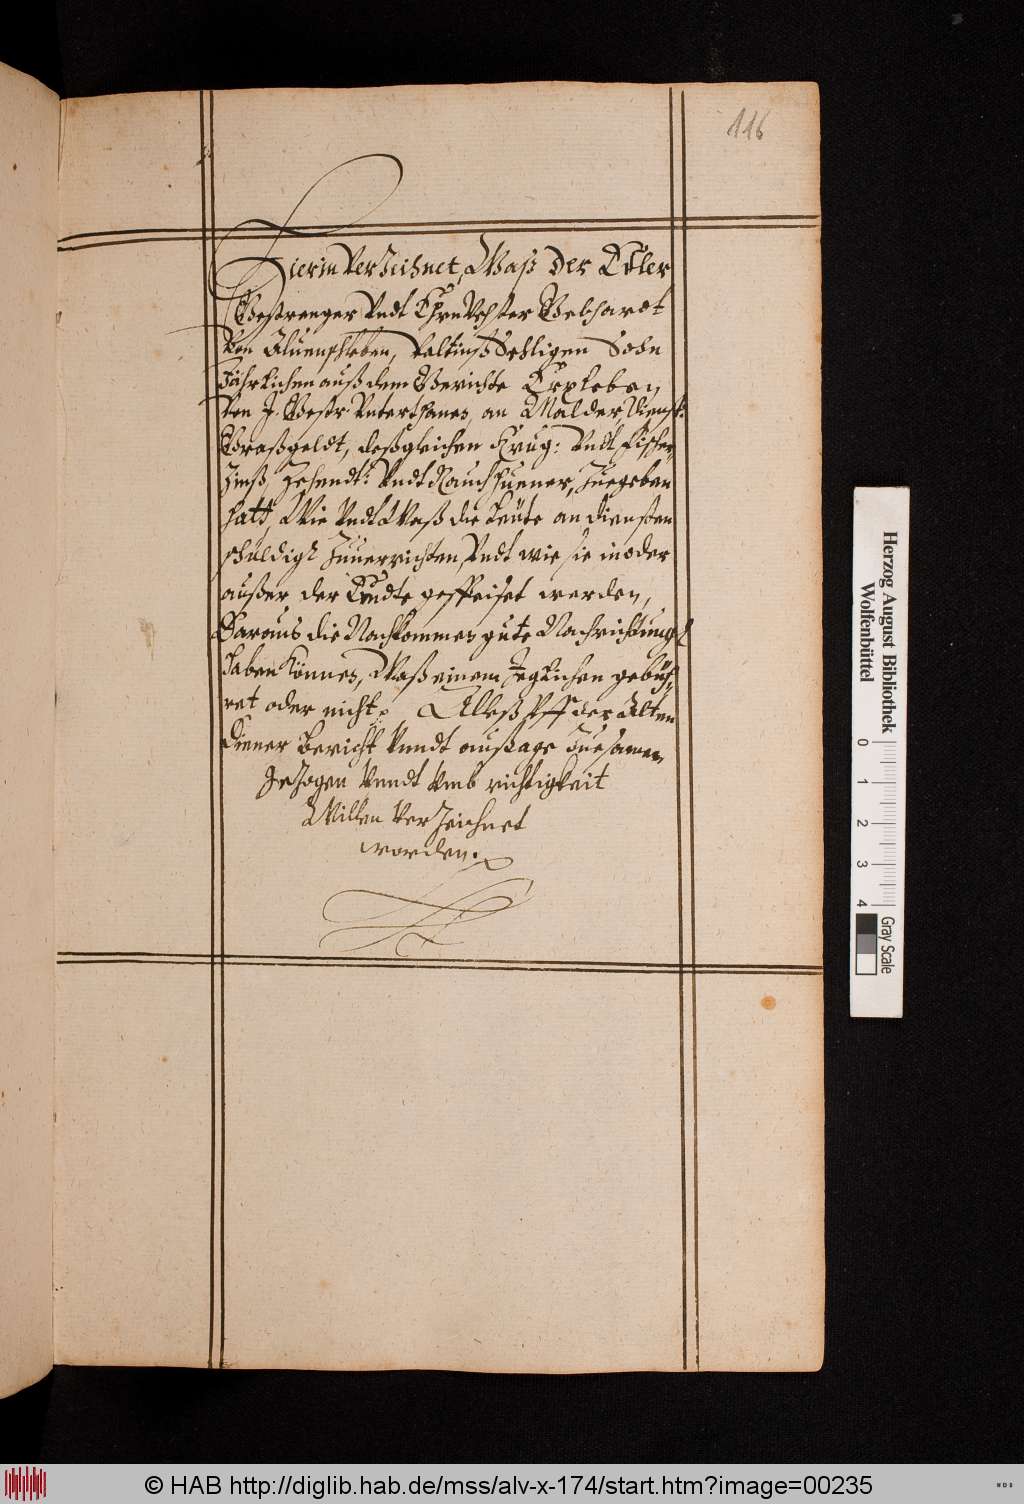 116
Hierin Verzeichnet, Waß der Edler
Gestrenger Undt Ehrnvhester Gebhardt
Von Aluenschleben, Valtinß Sehligen Sohn
Jährlichen auß dem Gerichte Erxleben
Von J. Gestr. Unterthanen an Malder Dienst:
Graßgeldt, deßgleichen Krug: Undt Fischer
Zinß, Zehendt: Undt Rauchhuener, Zuegeben
hatt, Wie Undt Waß die Leüte an diensten
schuldigk Zuuerrichten, Undt wie sie in oder
außer der Erndte gespeiset werden,
Daraus die Nachkommen gute Nachrichtung
haben können, Waß einem Jeglichen gebüh-
ret oder nicht. Alleß Uff der Alten
Diener Bericht Vnndt außage Zuesamen
gezogen Vnndt Vmb richtigkeit
Willen Verzeichnet
worden.
Herzog August Bibliothek
Wolfenbüttel
0 1 2 3 4
Gray Scale
© HAB http://diglib.hab.de/mss/alv-x-174/start.htm?image=00235